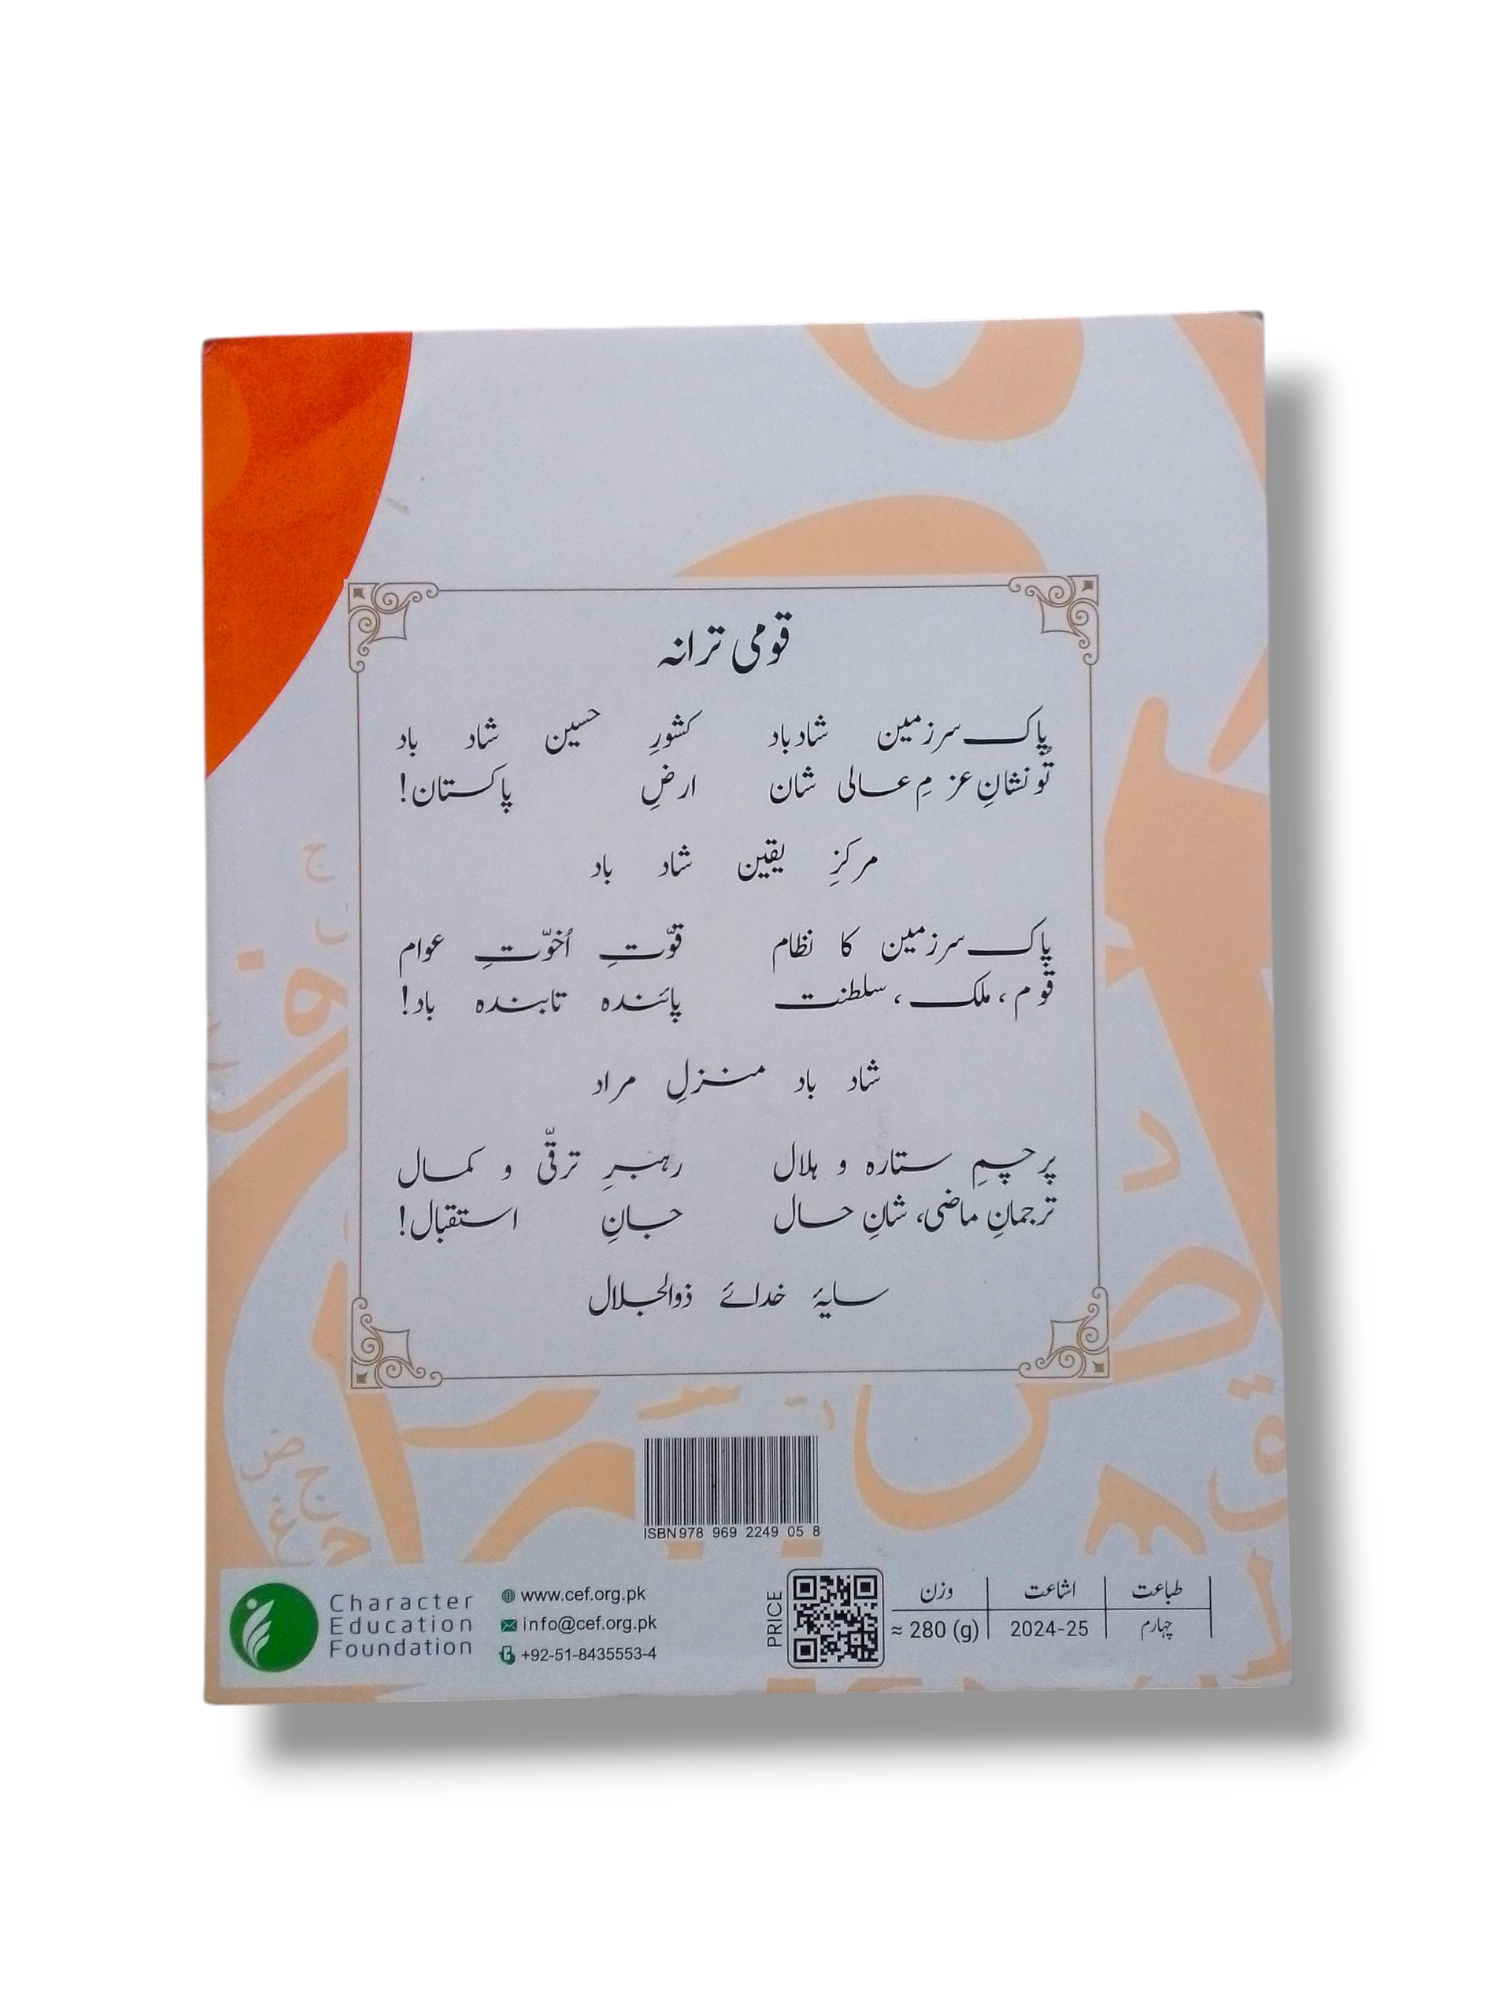 قومی ترانہ
پاک سرزمین شادباد کشورِ حسین شاد باد
تُو نشانِ عزمِ عالی شان ارضِ پاکستان!
مرکزِ یقین شاد باد
پاک سرزمین کا نظام قوّتِ اُخوّتِ عوام
قوم، ملک، سلطنت پائندہ تابندہ باد!
شاد باد منزلِ مراد
پرچمِ ستارہ و ہلال رہبرِ ترقّی و کمال
ترجمانِ ماضی، شانِ حال جانِ استقبال!
سایۂ خدائے ذوالجلال
ISBN 978 969 2249 05 8
Character
Education
Foundation
www.cef.org.pk
info@cef.org.pk
+92-51-8435553-4
PRICE
طباعت اشاعت وزن
چہارم 2024-25 ≈ 280 (g)